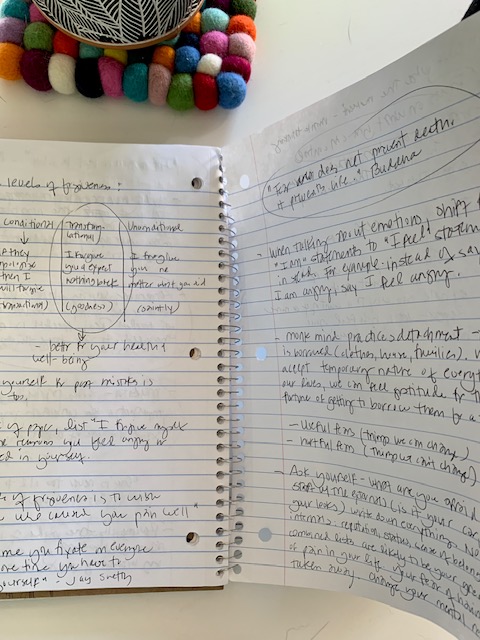 levels of forgiveness:
conditional
Transformational
Unconditional
if they
apologize
then I
will forgive
(transactional)
I forgive
you & expect
nothing back
(goodness)
I forgive
you no
matter what you did
(saintly)
- better for your health &
well-being
yourself for past mistakes is
too.
of paper, list "I forgive myself
the reasons you feel angry or
in yourself.
of forgiveness is to wish
who caused you pain well"
me you fixate on everyone
time you have to
yourself" - Jay Shetty
"Fear does not prevent death.
It prevents life." Buddha
- When talking about emotions, shift f
"I am" statements to "I feel" statem
instead. For example: instead of say
I am angry, say I feel angry.
- monk mind practices detachment -
is borrowed (clothes, house, families). W
accept temporary nature of everyt
our lives, we can feel gratitude for th
fortune of getting to borrow them for a
- useful fears (things we can change)
- hurtful fears (things we can't change)
- Ask yourself - what are you afraid
of (is it your car
your looks) write down everything. No
internals: reputation, status, sense of belong
combined lists are likely to be your gre
of pain in your life, your fear of having
taken away. Change your mental